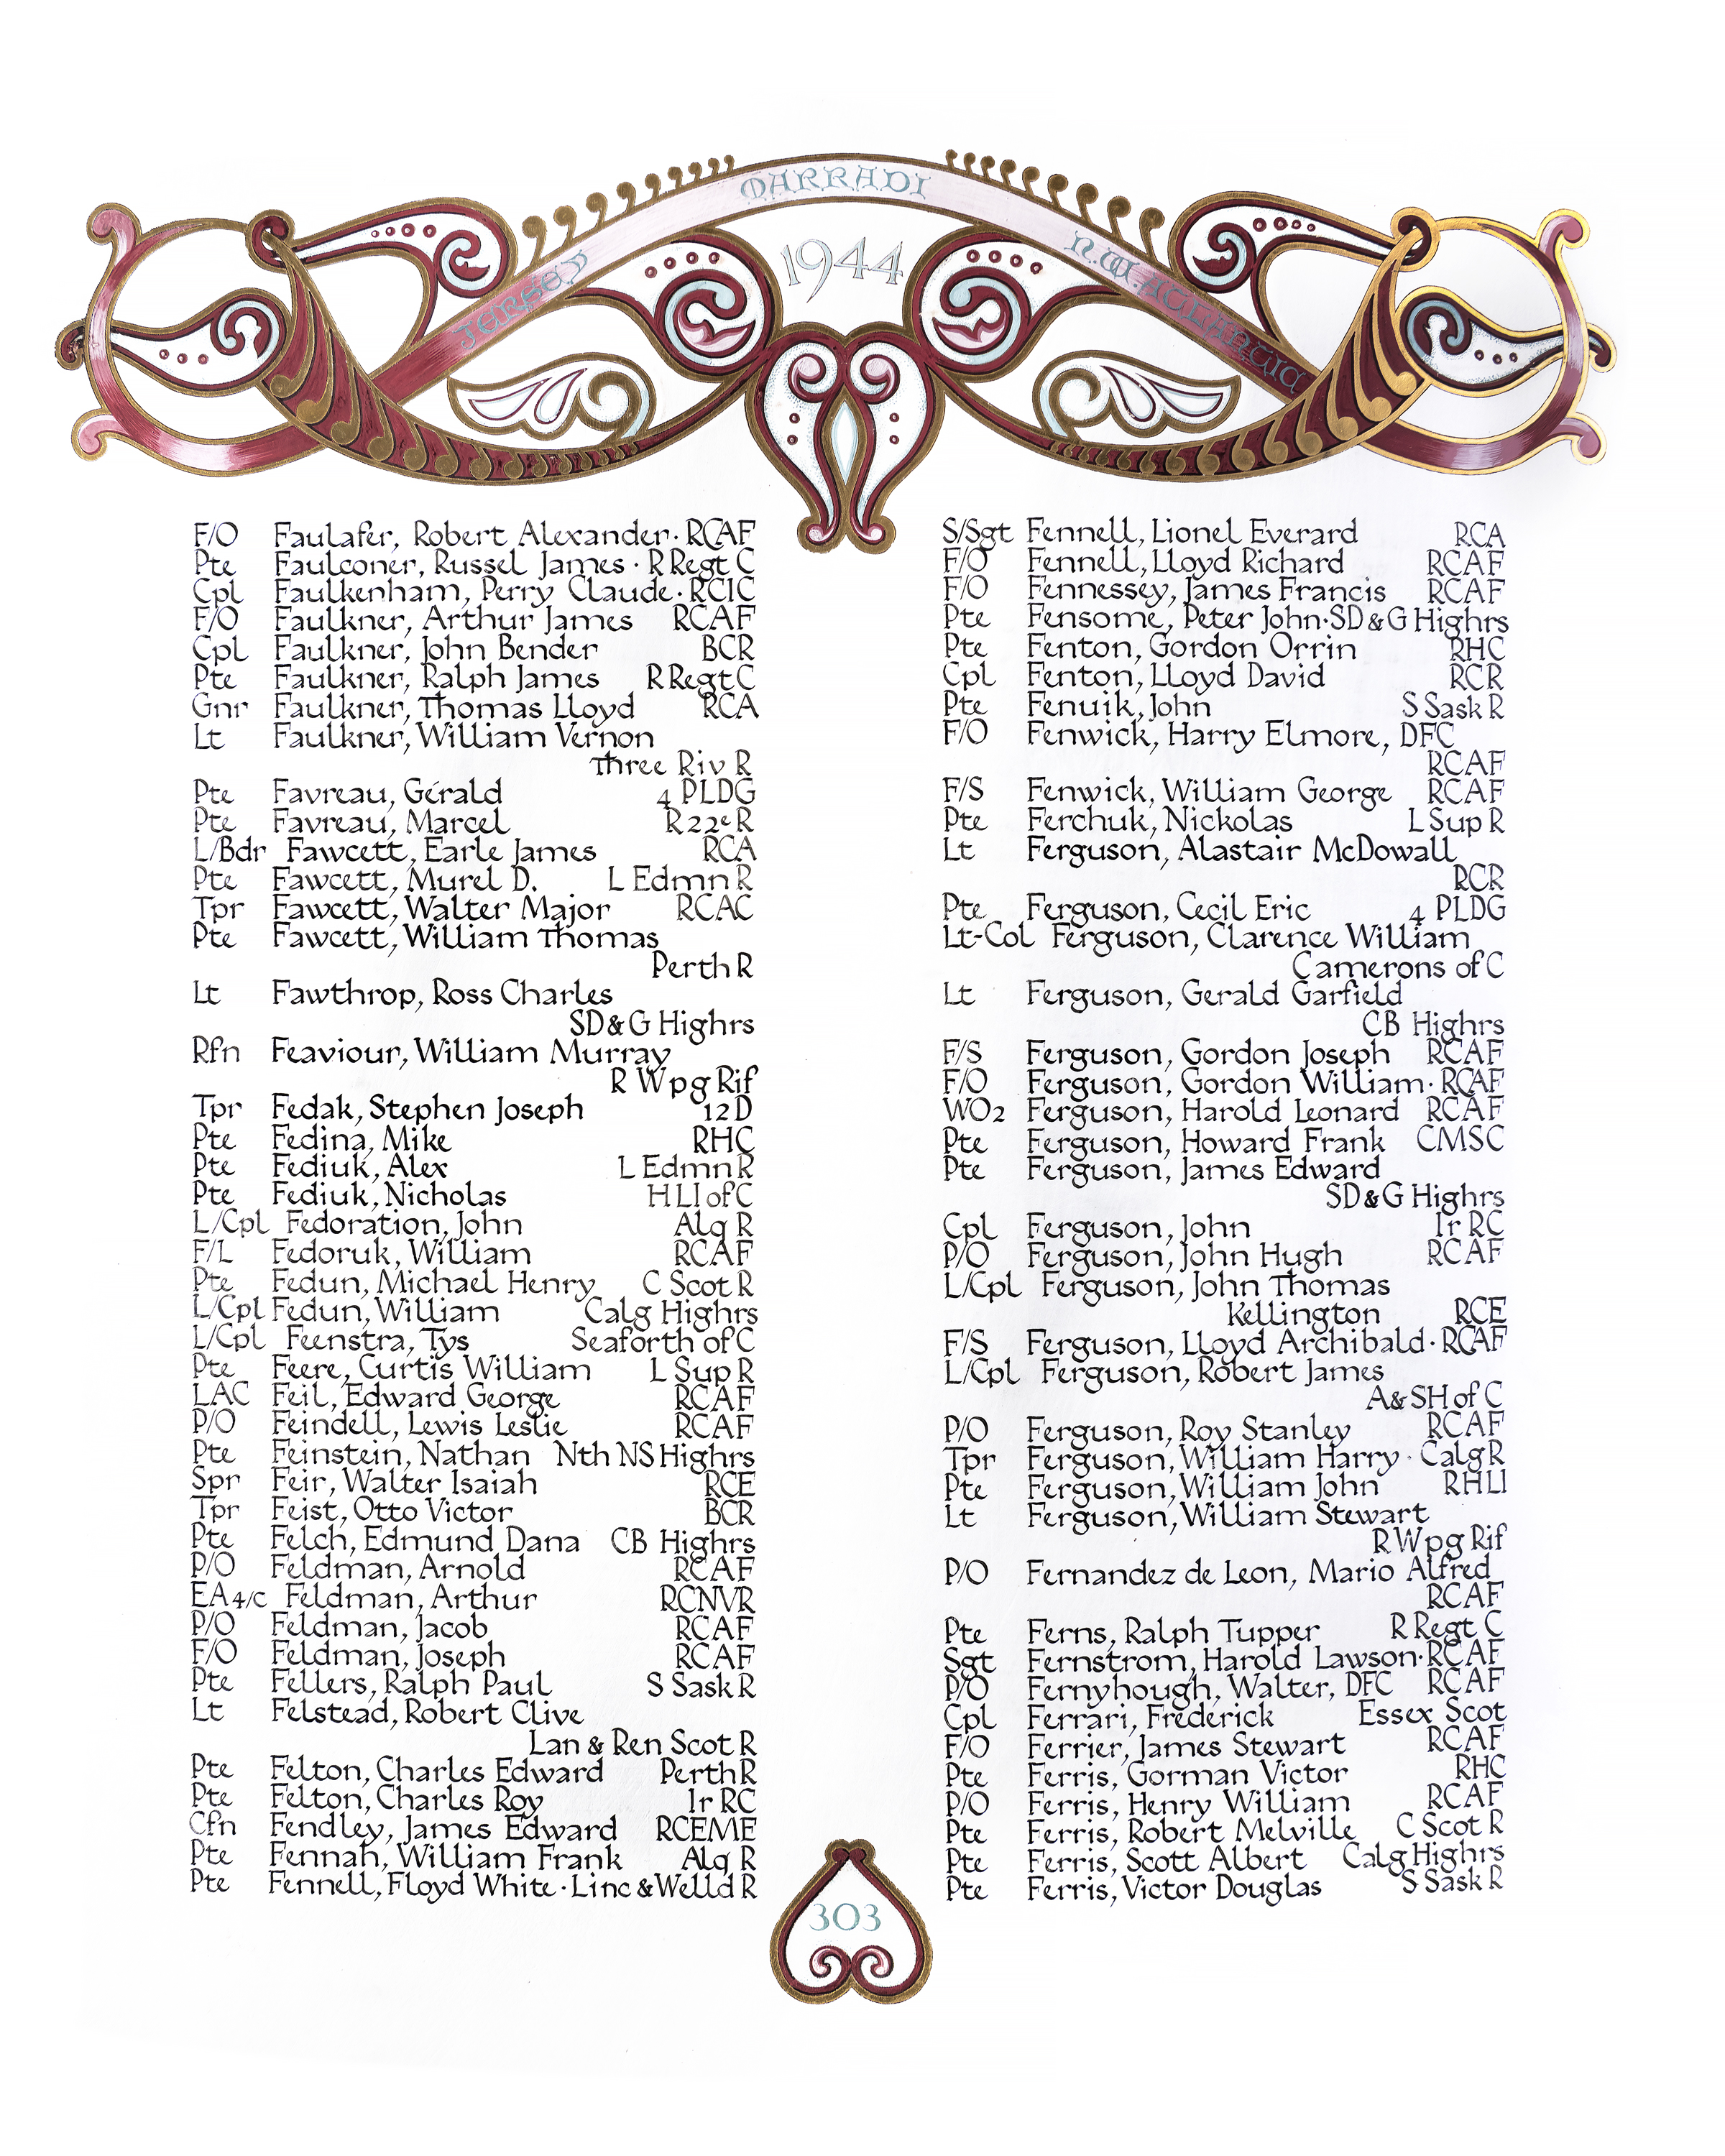 JERSEY MARRADI N.W. ATLANTIC
1944
F/O Faulafer, Robert Alexander · RCAF
Pte Faulconer, Russel James · R Regt C
Cpl Faulkenham, Perry Claude · RCIC
F/O Faulkner, Arthur James RCAF
Cpl Faulkner, John Bender BCR
Pte Faulkner, Ralph James R Regt C
Gnr Faulkner, Thomas Lloyd RCA
Lt Faulkner, William Vernon
Three Riv R
Pte Favreau, Gérald 4 PLDG
Pte Favreau, Marcel R22eR
L/Bdr Fawcett, Earle James RCA
Pte Fawcett, Murel D. L Edmn R
Tpr Fawcett, Walter Major RCAC
Pte Fawcett, William Thomas
Perth R
Lt Fawthrop, Ross Charles
SD&G Highrs
Rfn Feaviour, William Murray
R Wpg Rif
Tpr Fedak, Stephen Joseph 12 D
Pte Fedina, Mike RHC
Pte Fediuk, Alex L Edmn R
Pte Fediuk, Nicholas HLI of C
L/Cpl Fedoration, John Alq R
F/L Fedoruk, William RCAF
Pte Fedun, Michael Henry C Scot R
L/Cpl Fedun, William Calg Highrs
L/Cpl Feenstra, Tys Seaforth of C
Pte Feere, Curtis William L Sup R
LAC Feil, Edward George RCAF
P/O Feindell, Lewis Leslie RCAF
Pte Feinstein, Nathan Nth NS Highrs
Spr Feir, Walter Isaiah RCE
Tpr Feist, Otto Victor BCR
Pte Felch, Edmund Dana CB Highrs
P/O Feldman, Arnold RCAF
EA4/c Feldman, Arthur RCNVR
P/O Feldman, Jacob RCAF
F/O Feldman, Joseph RCAF
Pte Fellers, Ralph Paul S Sask R
Lt Felstead, Robert Clive
Lan & Ren Scot R
Pte Felton, Charles Edward Perth R
Pte Felton, Charles Roy Ir RC
Cfn Fendley, James Edward RCEME
Pte Fennah, William Frank Alq R
Pte Fennell, Floyd White · Linc & Welld R
S/Sgt Fennell, Lionel Everard RCA
F/O Fennell, Lloyd Richard RCAF
F/O Fennessey, James Francis RCAF
Pte Fensome, Peter John · SD&G Highrs
Pte Fenton, Gordon Orrin RHC
Cpl Fenton, Lloyd David RCR
Pte Fenuik, John S Sask R
F/O Fenwick, Harry Elmore, DFC
RCAF
F/S Fenwick, William George RCAF
Pte Ferchuk, Nickolas L Sup R
Lt Ferguson, Alastair McDowall
RCR
Pte Ferguson, Cecil Eric 4 PLDG
Lt-Col Ferguson, Clarence William
Camerons of C
Lt Ferguson, Gerald Garfield
CB Highrs
F/S Ferguson, Gordon Joseph RCAF
F/O Ferguson, Gordon William · RCAF
WO2 Ferguson, Harold Leonard RCAF
Pte Ferguson, Howard Frank CMSC
Pte Ferguson, James Edward
SD&G Highrs
Cpl Ferguson, John Ir RC
P/O Ferguson, John Hugh RCAF
L/Cpl Ferguson, John Thomas
Kellington RCE
F/S Ferguson, Lloyd Archibald · RCAF
L/Cpl Ferguson, Robert James
A&SH of C
P/O Ferguson, Roy Stanley RCAF
Tpr Ferguson, William Harry · Calg R
Pte Ferguson, William John RHLI
Lt Ferguson, William Stewart
R Wpg Rif
P/O Fernandez de Leon, Mario Alfred
RCAF
Pte Ferns, Ralph Tupper R Regt C
Sgt Fernstrom, Harold Lawson · RCAF
P/O Fernyhough, Walter, DFC RCAF
Cpl Ferrari, Frederick Essex Scot
F/O Ferrier, James Stewart RCAF
Pte Ferris, Gorman Victor RHC
P/O Ferris, Henry William RCAF
Pte Ferris, Robert Melville C Scot R
Pte Ferris, Scott Albert Calg Highrs
Pte Ferris, Victor Douglas S Sask R
303